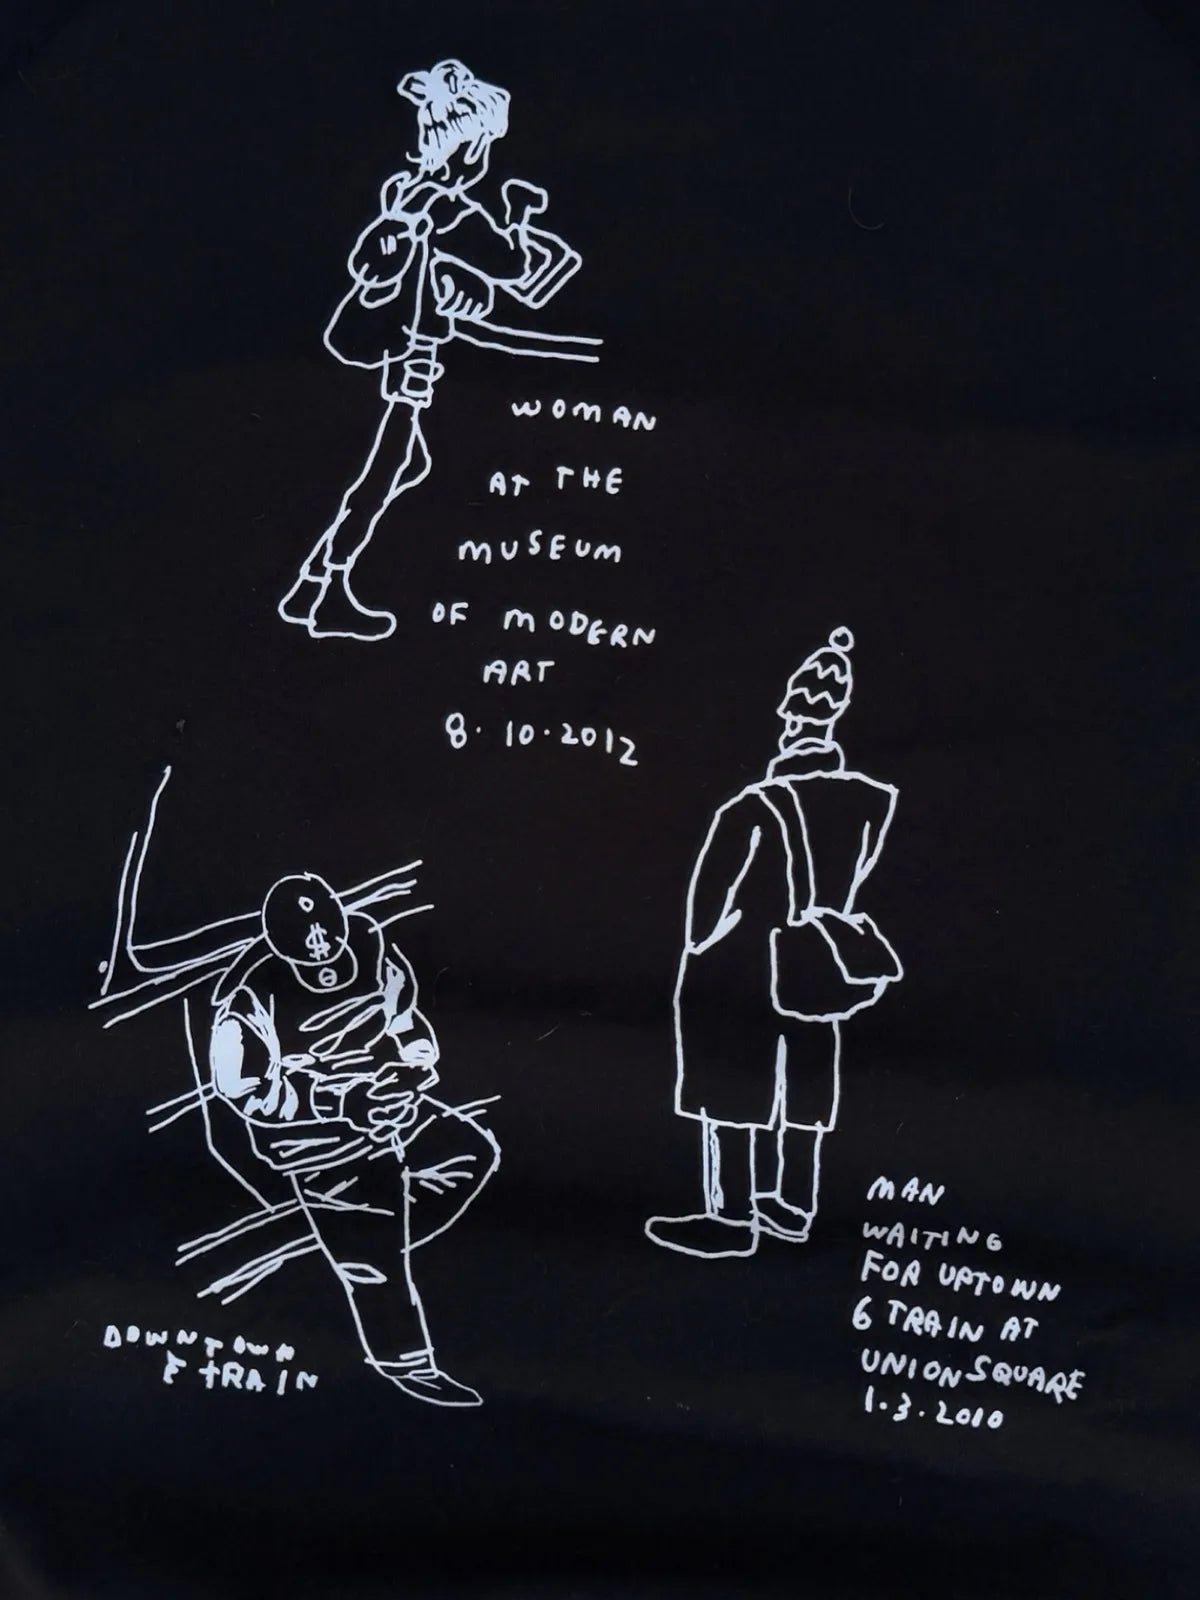 WOMAN
AT THE
MUSEUM
OF MODERN
ART
8.10.2012
$
DOWNTOWN
E TRAIN
MAN
WAITING
FOR UPTOWN
6 TRAIN AT
UNION SQUARE
1.3.2010